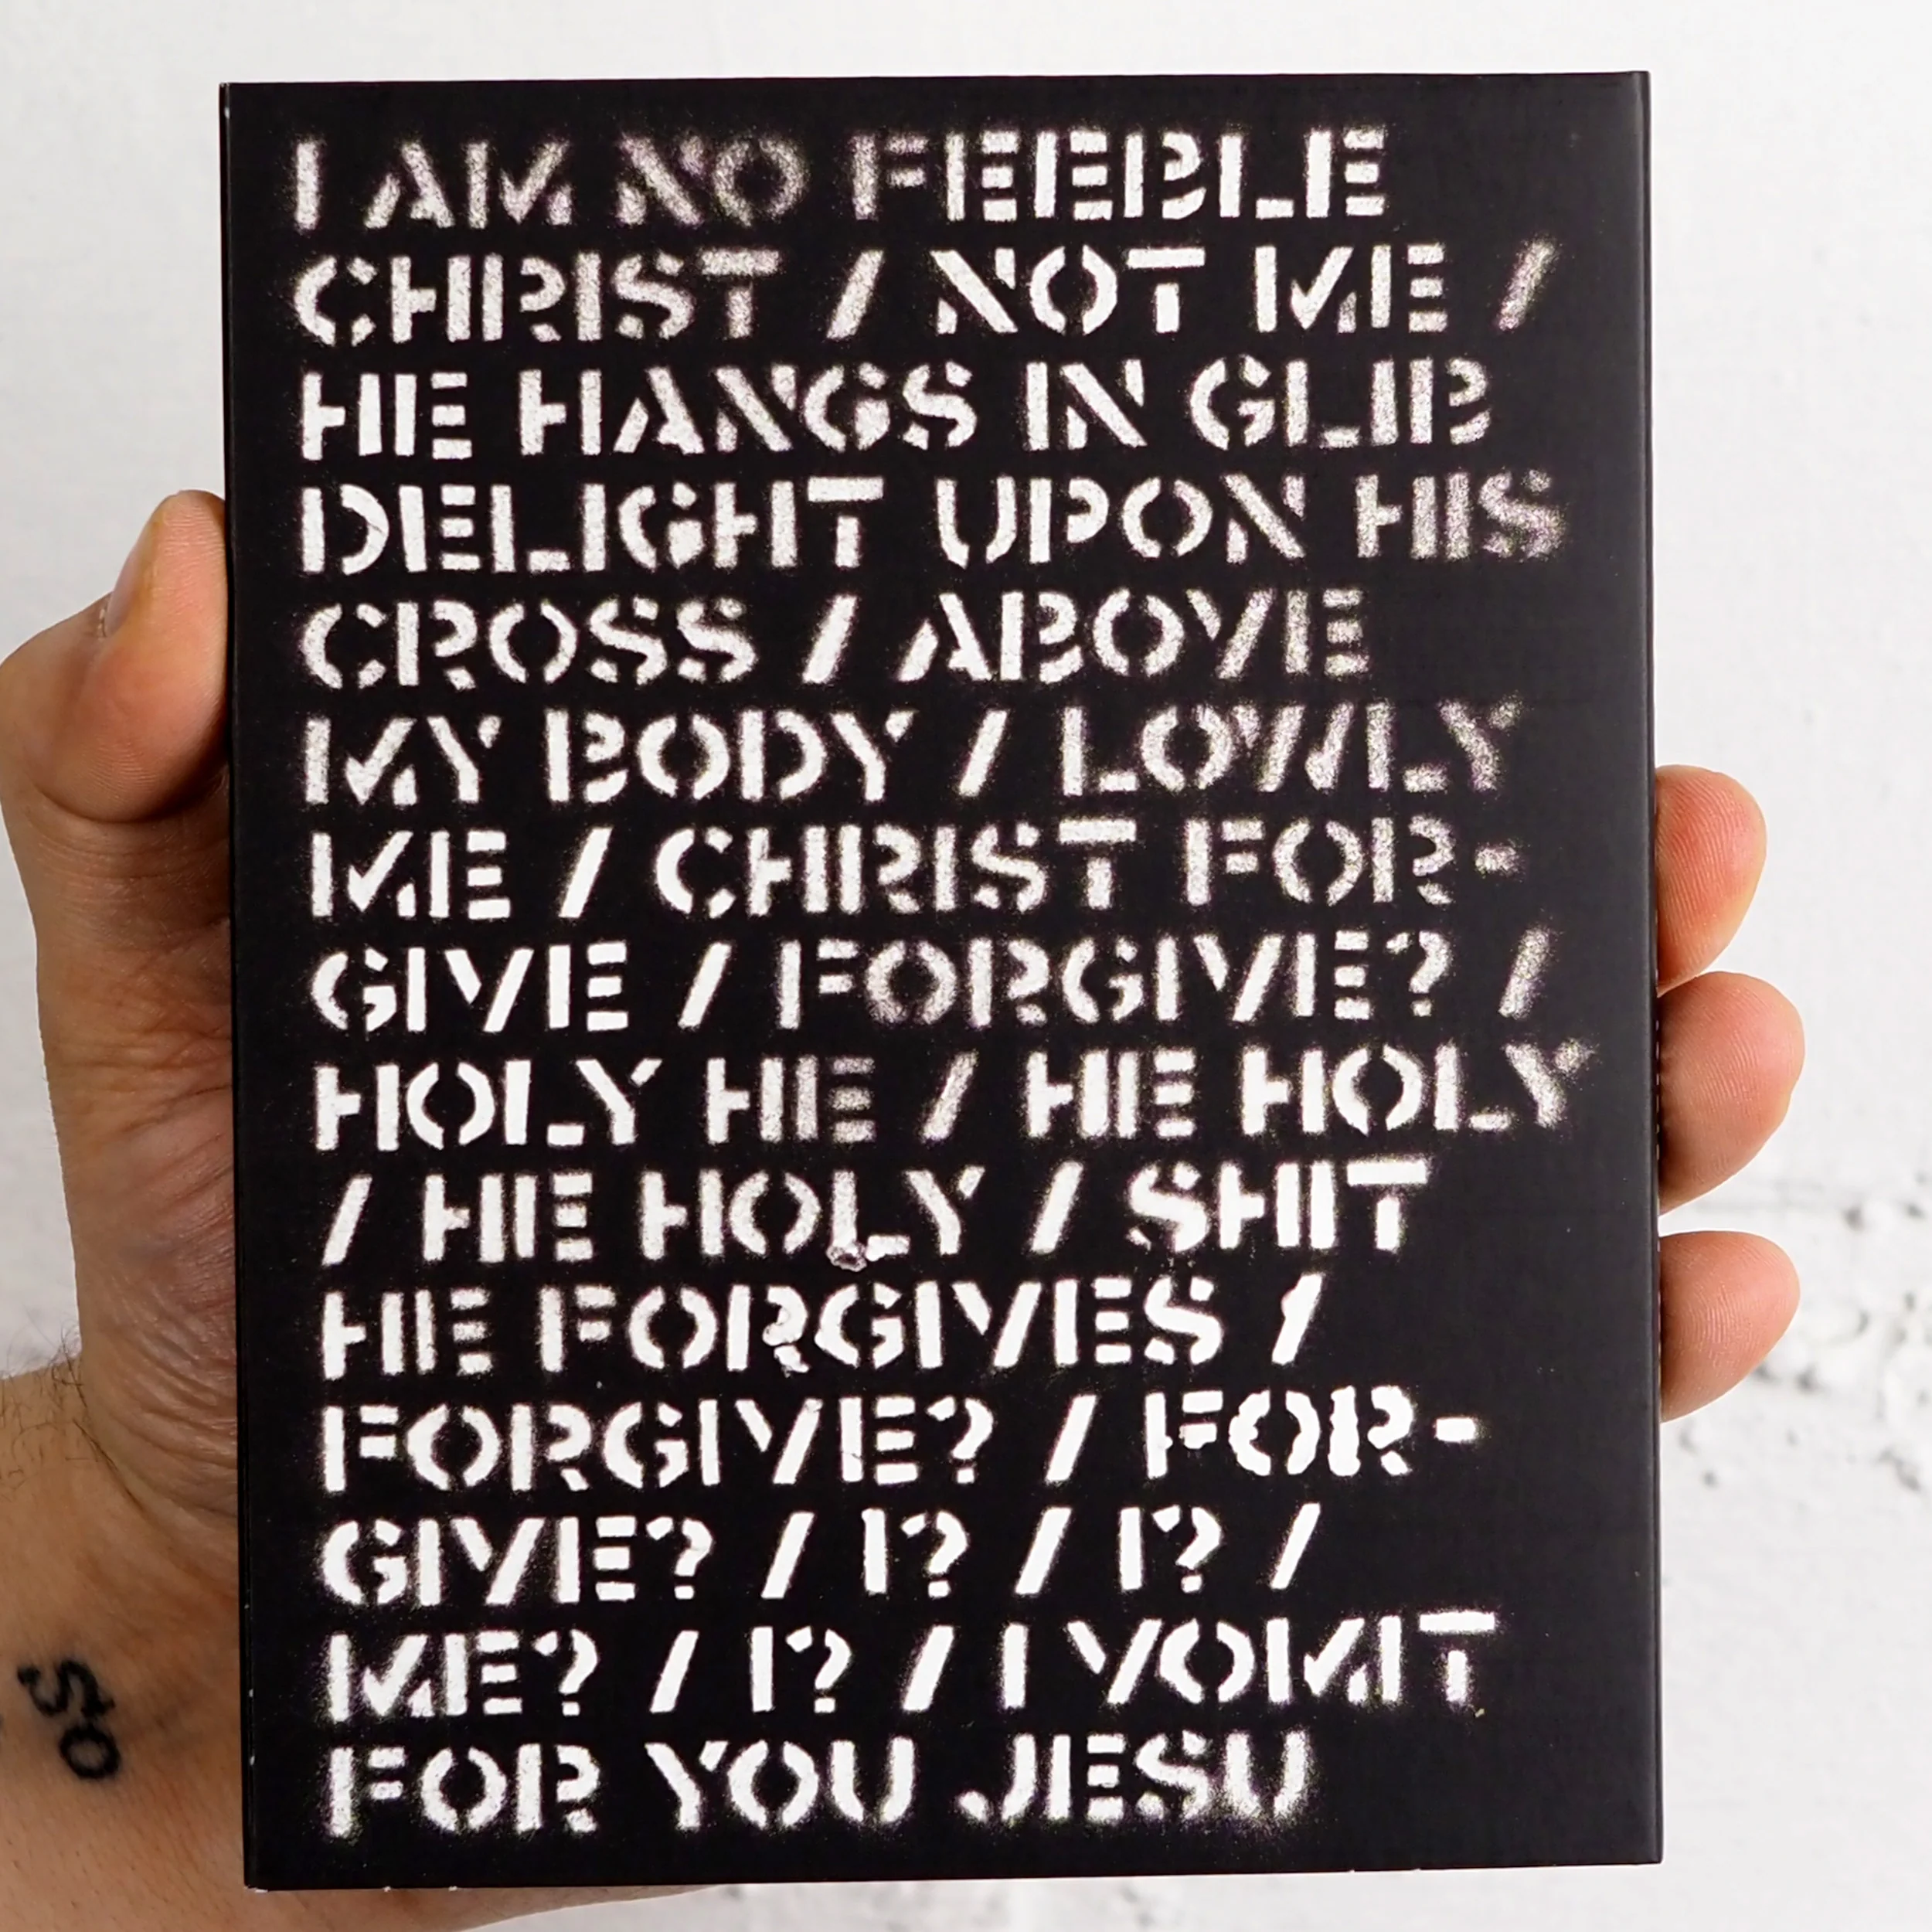 I AM NO FEEBLE
CHRIST / NOT ME /
HE HANGS IN GLIB
DELIGHT UPON HIS
CROSS / ABOVE
MY BODY / LOWLY
ME / CHRIST FOR-
GIVE / FORGIVE? /
HOLY HE / HE HOLY
/ HE HOLY / SHIT
HE FORGIVES /
FORGIVE? / FOR-
GIVE? / I? / I? /
ME? / I? / I VOMIT
FOR YOU JESU
so